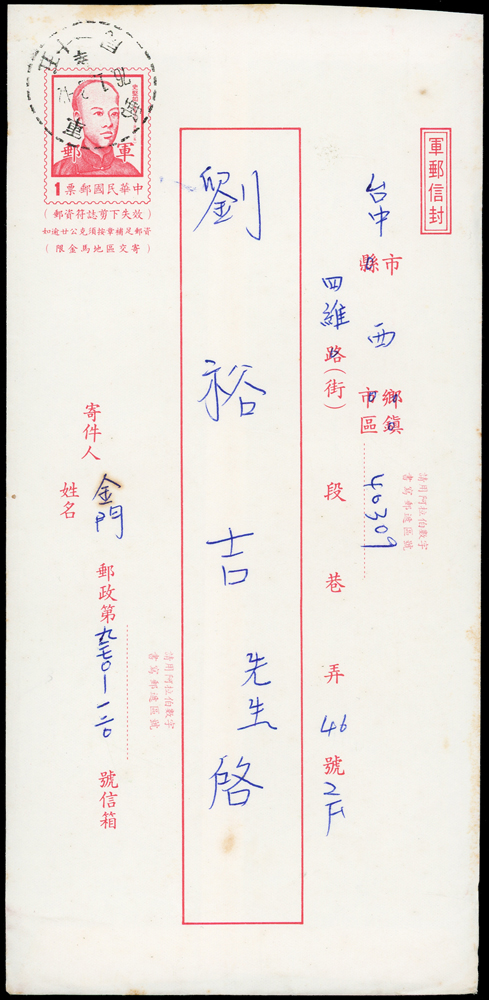 軍郵信封
台中市縣
西鄉鎮市區
請用阿拉伯數字
書寫郵遞區號
40309
四維路(街)段巷弄46號2F
劉裕吉先生啓
軍郵
1票郵國民華中
(效失下剪誌符資郵)
如逾廿公克須按章補足郵資
(限金馬地區交寄)
寄件人
姓名
金門
郵政第九七〇一一二〇號信箱
請用阿拉伯數字
書寫郵遞區號